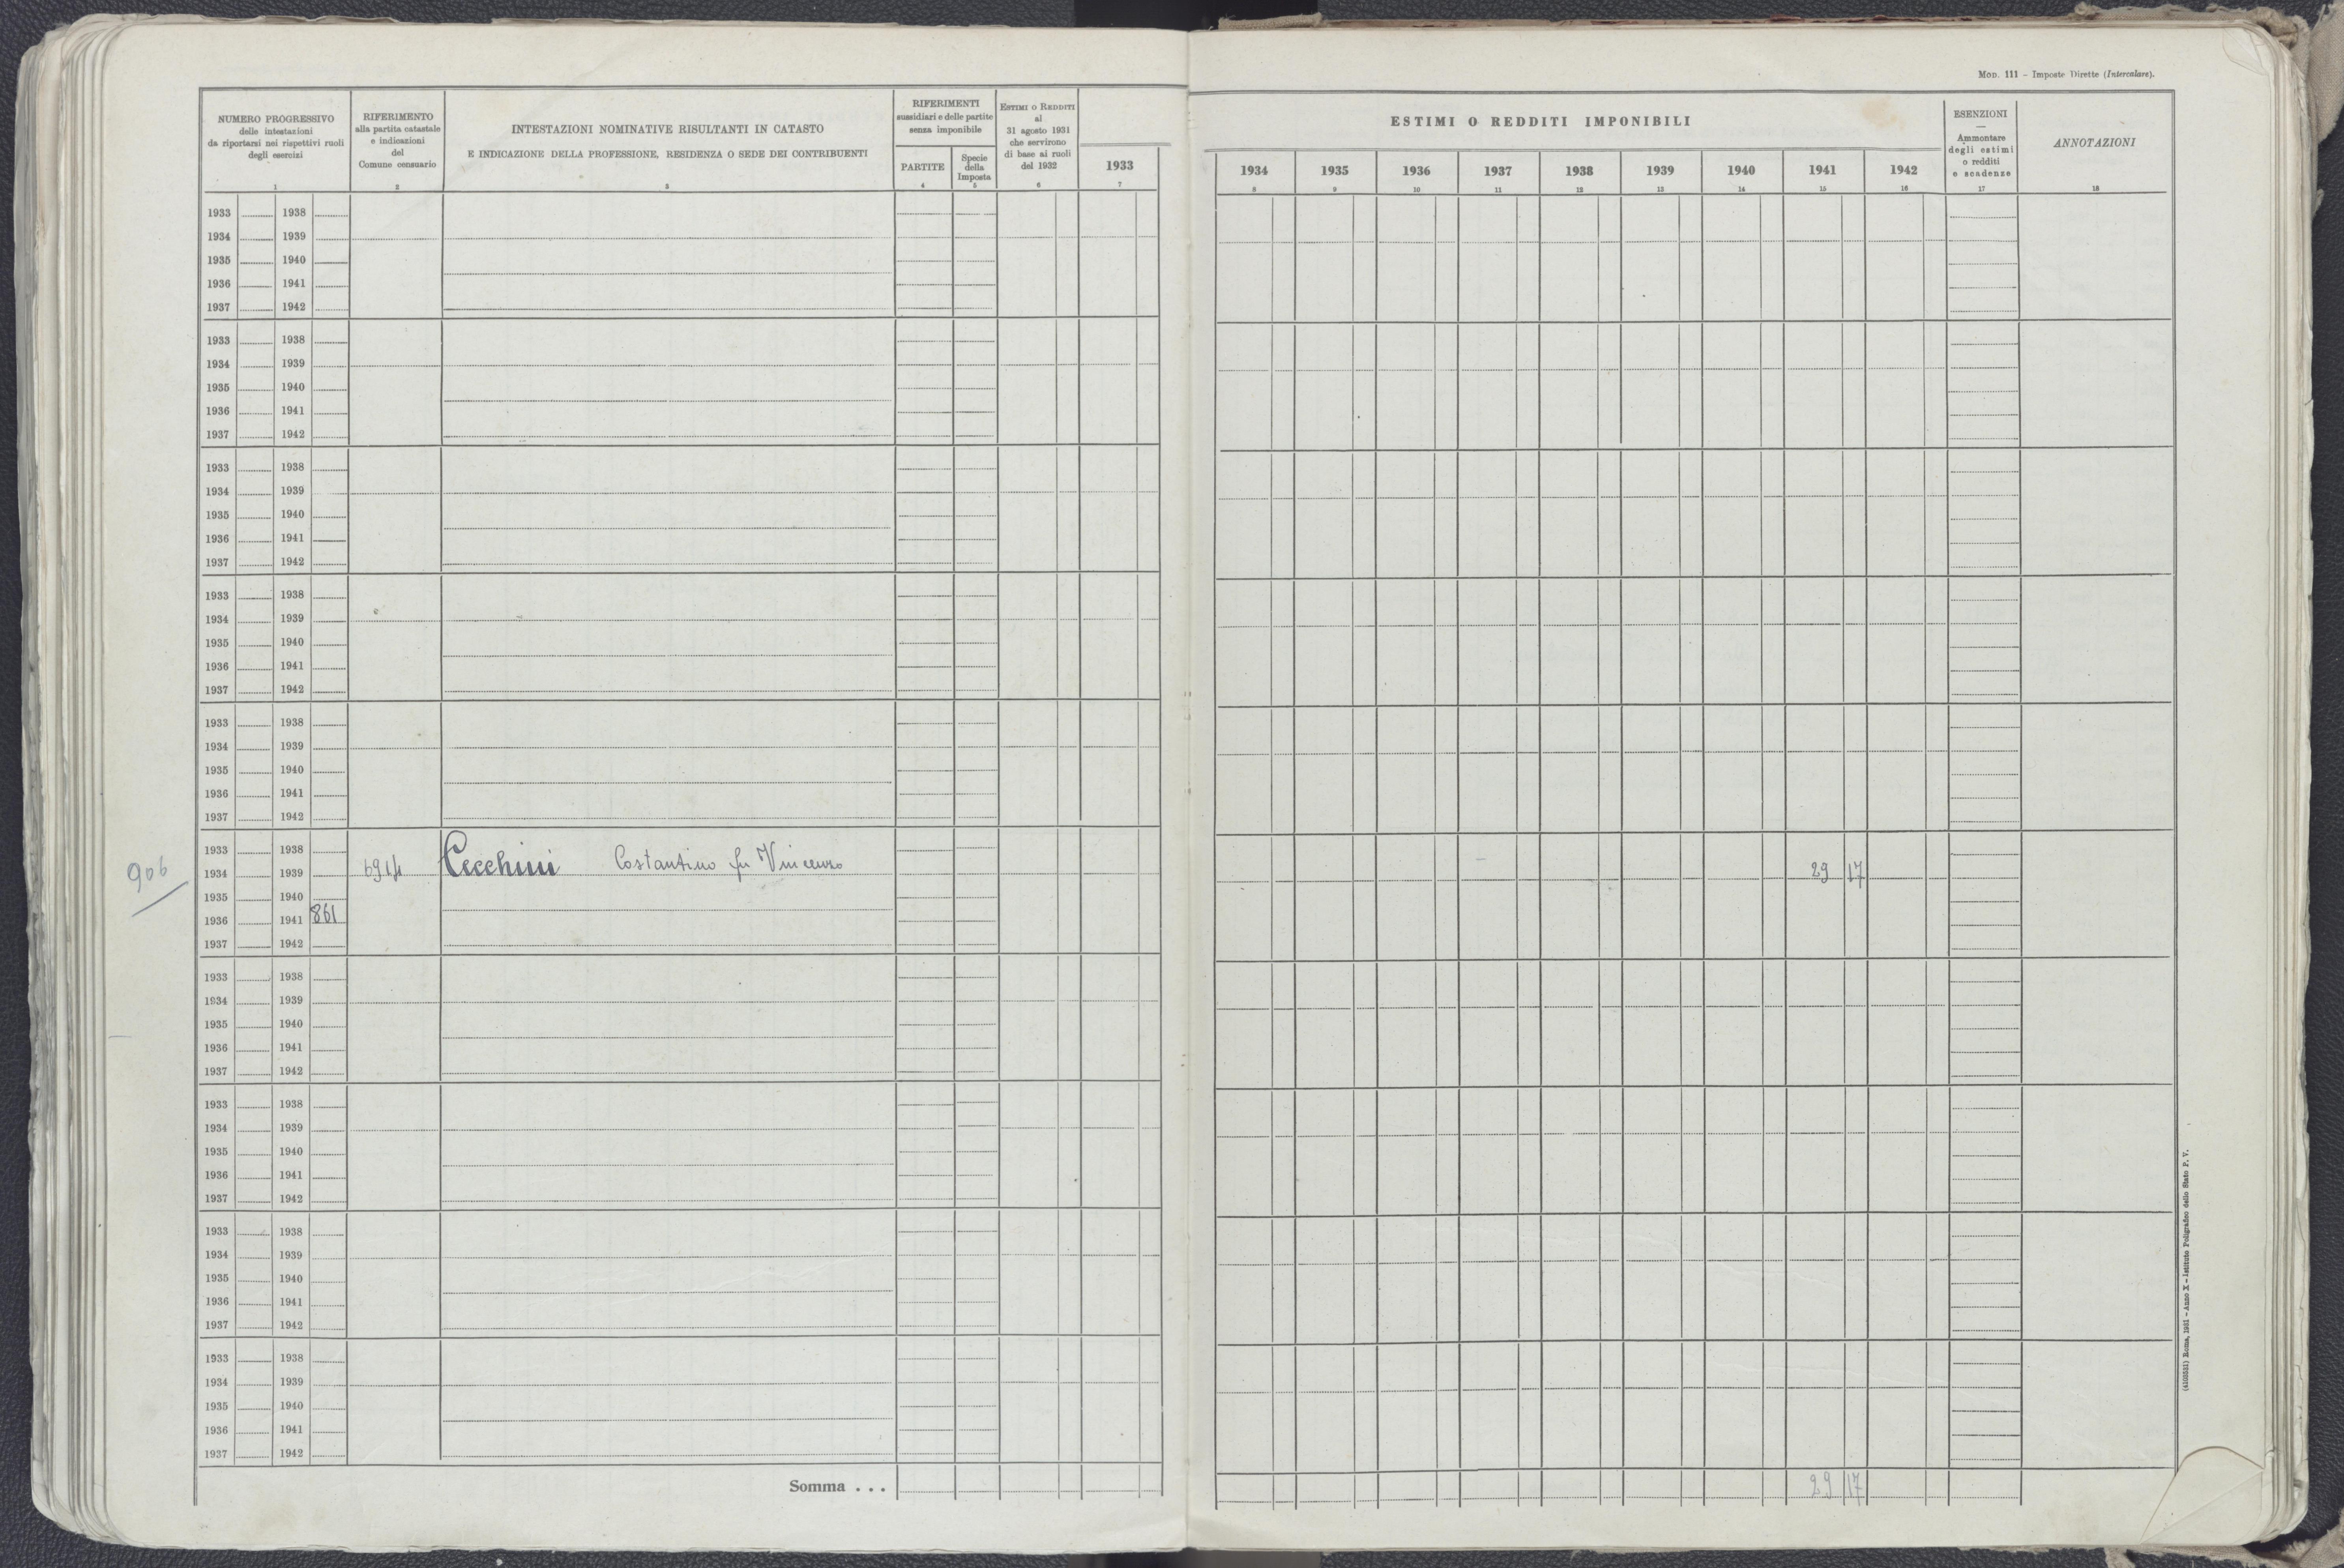 Mod. 111 - Imposte Dirette (Intercalare).
NUMERO PROGRESSIVO
delle intestazioni
da riportarsi nei rispettivi ruoli
degli esercizi
1
RIFERIMENTO
alla partita catastale
e indicazioni
del
Comune censuario
2
INTESTAZIONI NOMINATIVE RISULTANTI IN CATASTO
E INDICAZIONE DELLA PROFESSIONE, RESIDENZA O SEDE DEI CONTRIBUENTI
3
RIFERIMENTI
sussidiari e delle partite
senza imponibile
PARTITE
4
Specie
della
Imposta
5
Estimi o Redditi
al
31 agosto 1931
che servirono
di base ai ruoli
del 1932
6
1933
7
ESTIMI O REDDITI IMPONIBILI
1934 1935 1936 1937 1938 1939 1940 1941 1942
8 9 10 11 12 13 14 15 16
ESENZIONI
—
Ammontare
degli estimi
o redditi
e scadenze
17
ANNOTAZIONI
18
1933 1938
1934 1939
1935 1940
1936 1941
1937 1942
1933 1938
1934 1939
1935 1940
1936 1941
1937 1942
1933 1938
1934 1939
1935 1940
1936 1941
1937 1942
1933 1938
1934 1939
1935 1940
1936 1941
1937 1942
1933 1938
1934 1939
1935 1940
1936 1941
1937 1942
1933 1938
906 1934 1939 6914 Cecchini Costantino fu Vincenzo 29 17
1935 1940
1936 1941 861
1937 1942
1933 1938
1934 1939
1935 1940
1936 1941
1937 1942
1933 1938
1934 1939
1935 1940
1936 1941
1937 1942
1933 1938
1934 1939
1935 1940
1936 1941
1937 1942
1933 1938
1934 1939
1935 1940
1936 1941
1937 1942
Somma . . . 29 17
Roma, 1931 - Anno X - Istituto Poligrafico dello Stato P. V.